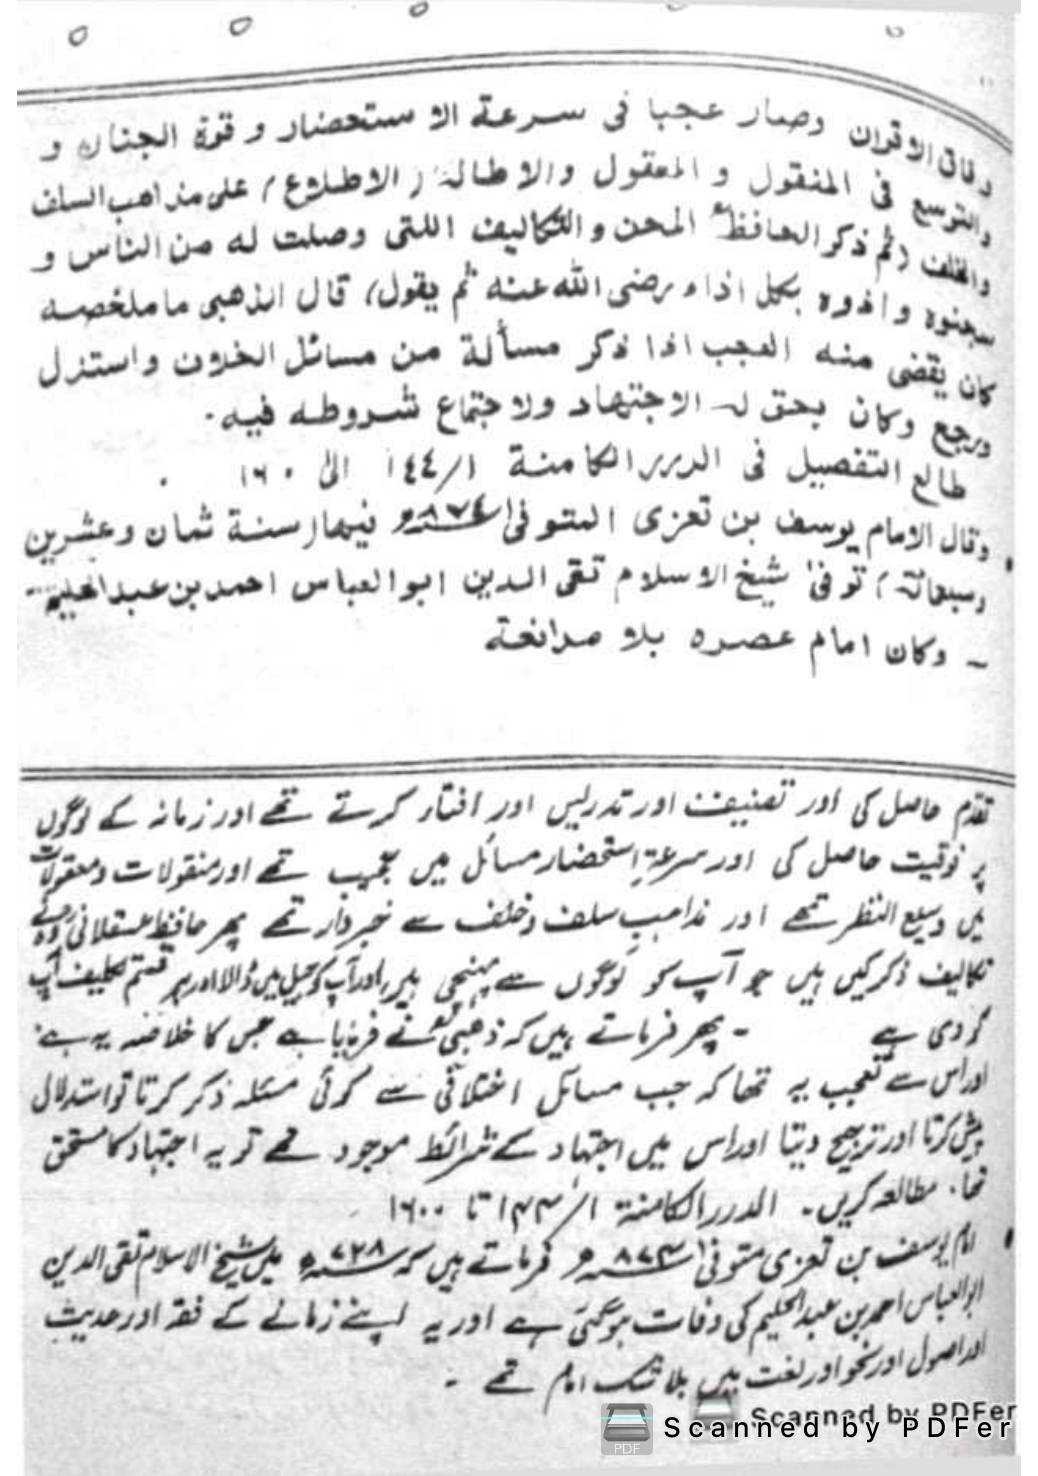 وفاق الاقران وصار عجبا فى سرعة الاستحضار و قوة الجنان و
والتوسع فى المنقول و المعقول والاطالة (الاطلاع) على مذاهب السلف
والخلف (ثم ذكر الحافظ المحن و التكاليف اللتى وصلت له من الناس و
سجنوه و اذوه بكل اذاء رضى الله عنه ثم يقول) قال الذهبى ما ملخصه
كان يقضى منه العجب اذا ذكر مسألة من مسائل الخلاف واستدل
ورجح وكان يحق له الاجتهاد ولاجتماع شروطه فيه۔
طالع التفصيل فى الدرر الكامنة ۱/۱٤٤ الى ۱٦۰
وقال الامام يوسف بن تعزى المتوفى ۸۷٤ فيها رسنة ثمان وعشرين
وسبعمائة) توفى شيخ الاسلام تقى الدين ابو العباس احمد بن عبد الحليم
۔ وكان امام عصره بلا مدافعة
تقدم حاصل کی اور تصنیف اور تدریس اور افتار کرتے تھے اور زمانہ کے لوگوں
پر فوقیت حاصل کی اور سرعۃِ استحضار مسائل میں عجیب تھے اور منقولات و معقولات
میں وسیع النظر تھے اور مذاہب سلف وخلف سے خبردار تھے پھر حافظ عسقلانی نے وہ
تکالیف ذکر کیں ہیں جو آپ کو لوگوں سے پہنچی ہیں اور آپ کو جیل میں ڈالا اور ہر قسم تکلیف آپ
کو دی ہے ۔ پھر فرماتے ہیں کہ ذھبی نے فرمایا ہے جس کا خلاصہ یہ ہے:
اور اس سے تعجب یہ تھا کہ جب مسائل اختلافی سے کوئی مسئلہ ذکر کرتا تو استدلال
پیش کرتا اور ترجیح دیتا اور اس میں اجتہاد کے شرائط موجود تھے تو یہ اجتہاد کا مستحق
تھا۔ مطالعہ کریں۔ الدرر الکامنة ۱/۱۴۴ تا ۱۶۰۰
امام یوسف بن تعزی متوفی ۸۷۴ فرماتے ہیں کہ ۷۲۸ میں شیخ الاسلام تقی الدین
ابو العباس احمد بن عبد الحلیم کی وفات ہوگئی ہے اور یہ اپنے زمانے کے فقہ اور حدیث
اور اصول اور نحو اور لغت میں بلا شک امام تھے ۔
Scanned by PDFer
Scanned by PDFer
PDF